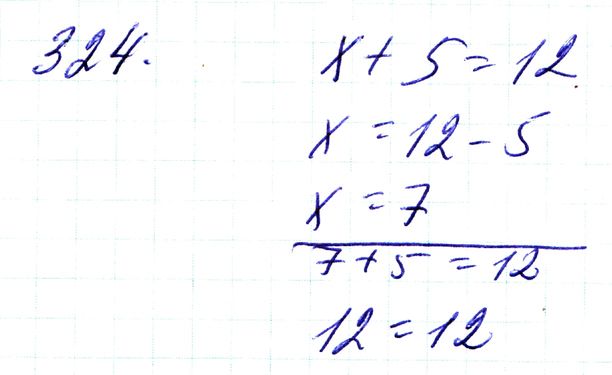 324. x + 5 = 12
x = 12 - 5
x = 7
7 + 5 = 12
12 = 12